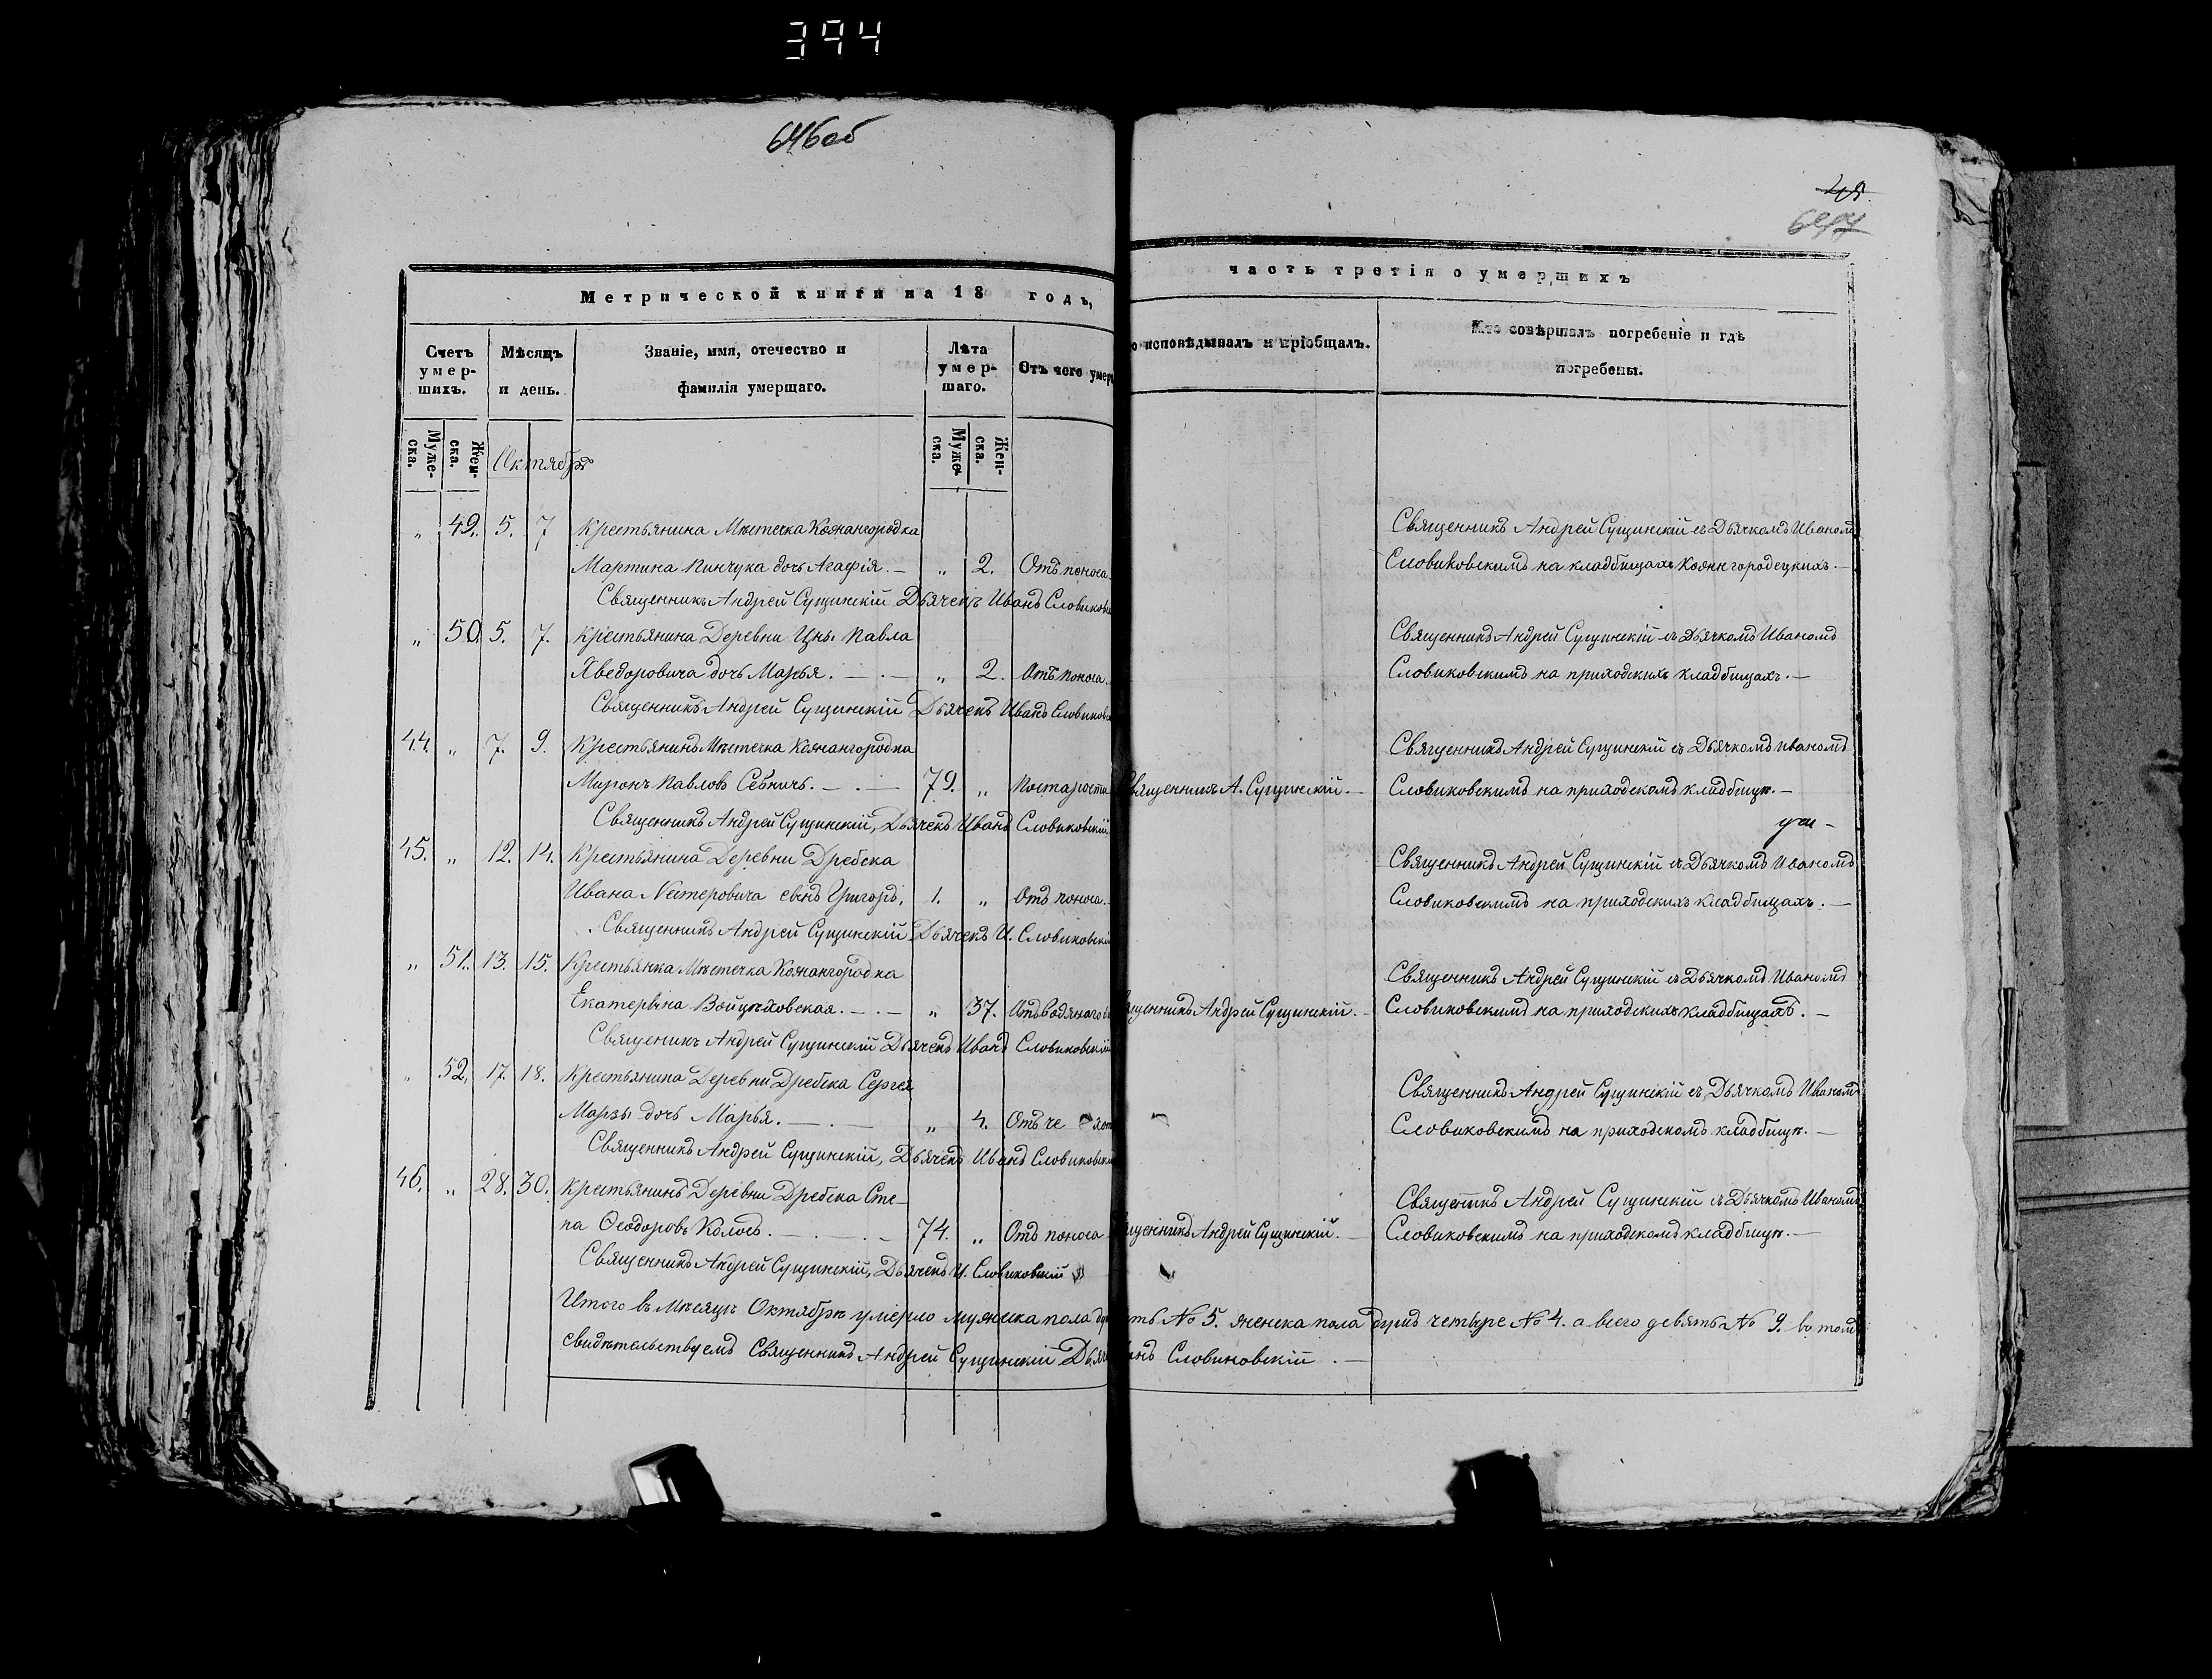 394
646об
647
Метрической книги на 18 годъ,
часть третія о умершихъ
Счетъ умер-шихъ.
Мѣсяцъ и день.
Званіе, имя, отечество и фамилія умершаго.
Лѣта умер-шаго.
Отъ чего умер
о исповѣдывалъ и пріобщалъ.
Кто совѣршалъ погребеніе и гдѣ погребены.
Муже-ска.
Жен-ска.
Октябрь
Муже-ска.
Жен-ска.
„ 49. 5. 7 Крестьянина Мѣстечка Кожангородка Священникъ Андрей Сущинскій съ Дьячкомъ Иваномъ
Мартина Пинчука дочь Агафія. — „ 2. Отъ поноса. Словиковскимъ на кладбищахъ Кожангородецкихъ. —
Священникъ Андрей Сущинскій Дьячекъ Иванъ Словиковс
„ 50. 5. 7. Крестьянина Деревни Цны Павла Священникъ Андрей Сущинскій съ Дьячкомъ Иваномъ
Хведоровича дочь Марья. — . — „ 2. Отъ поноса. Словиковскимъ на приходскихъ кладбищахъ. —
Священникъ Андрей Сущинскій Дьячекъ Иванъ Словиковс
44. „ 7. 9. Крестьянинъ Мѣстечка Кожангородка Священникъ Андрей Сущинскій съ Дьячкомъ Иваномъ
Миронъ Павловъ Себничъ. — . — 79. „ По старости Священникъ А. Сущинскій. — Словиковскимъ на приходскомъ кладбищѣ. —
Священникъ Андрей Сущинскій, Дьячекъ Иванъ Словиковскій
45. „ 12. 14. Крестьянина Деревни Дребска Священникъ Андрей Сущинскій съ Дьячкомъ Иваномъ
Ивана Нестеровича сынъ Григоръ. 1. „ Отъ поноса. Словиковскимъ на приходскихъ кладбищахъ. —
Священникъ Андрей Сущинскій Дьячекъ И. Словиковскі
„ 51. 13. 15. Крестьянка Мѣстечка Кожангородка Священникъ Андрей Сущинскій съ Дьячкомъ Иваномъ
Екатерина Войцѣховская. — . — „ 37. Отъ Водянаго щенникъ Андрей Сущинскій. — Словиковскимъ на приходскихъ кладбищахъ. —
Священикъ Андрей Сущинскій Дьячекъ Иванъ Словиковскій
„ 52. 17. 18. Крестьянина Деревни Дребска Сергея Священникъ Андрей Сущинскій съ Дьячкомъ Иваномъ
Марзы дочь Марья. — . — „ 4. Отъ Словиковскимъ на приходскомъ кладбищѣ. —
Священникъ Андрей Сущинскій, Дьячекъ Иванъ Словиковск
46. „ 28. 30. Крестьянинъ Деревни Дребска Сте- Священикъ Андрей Сущинскій съ Дьячкомъ Иваномъ
па Ѳеодоровъ Колосъ. — . — . — 74. „ Отъ поноса щенникъ Андрей Сущинскій. — Словиковскимъ на приходскомъ кладбищѣ. —
Священникъ Андрей Сущинскій, Дьячекъ И. Словиковскій
Итого въ Мѣсяцѣ Октябрѣ умерло мужеска пола ть № 5. женска пола душъ четыре № 4. а всего девять № 9. въ томъ
свидѣтельствуемъ Священникъ Андрей Сущинскій Дьяч анъ Словиковскій. —